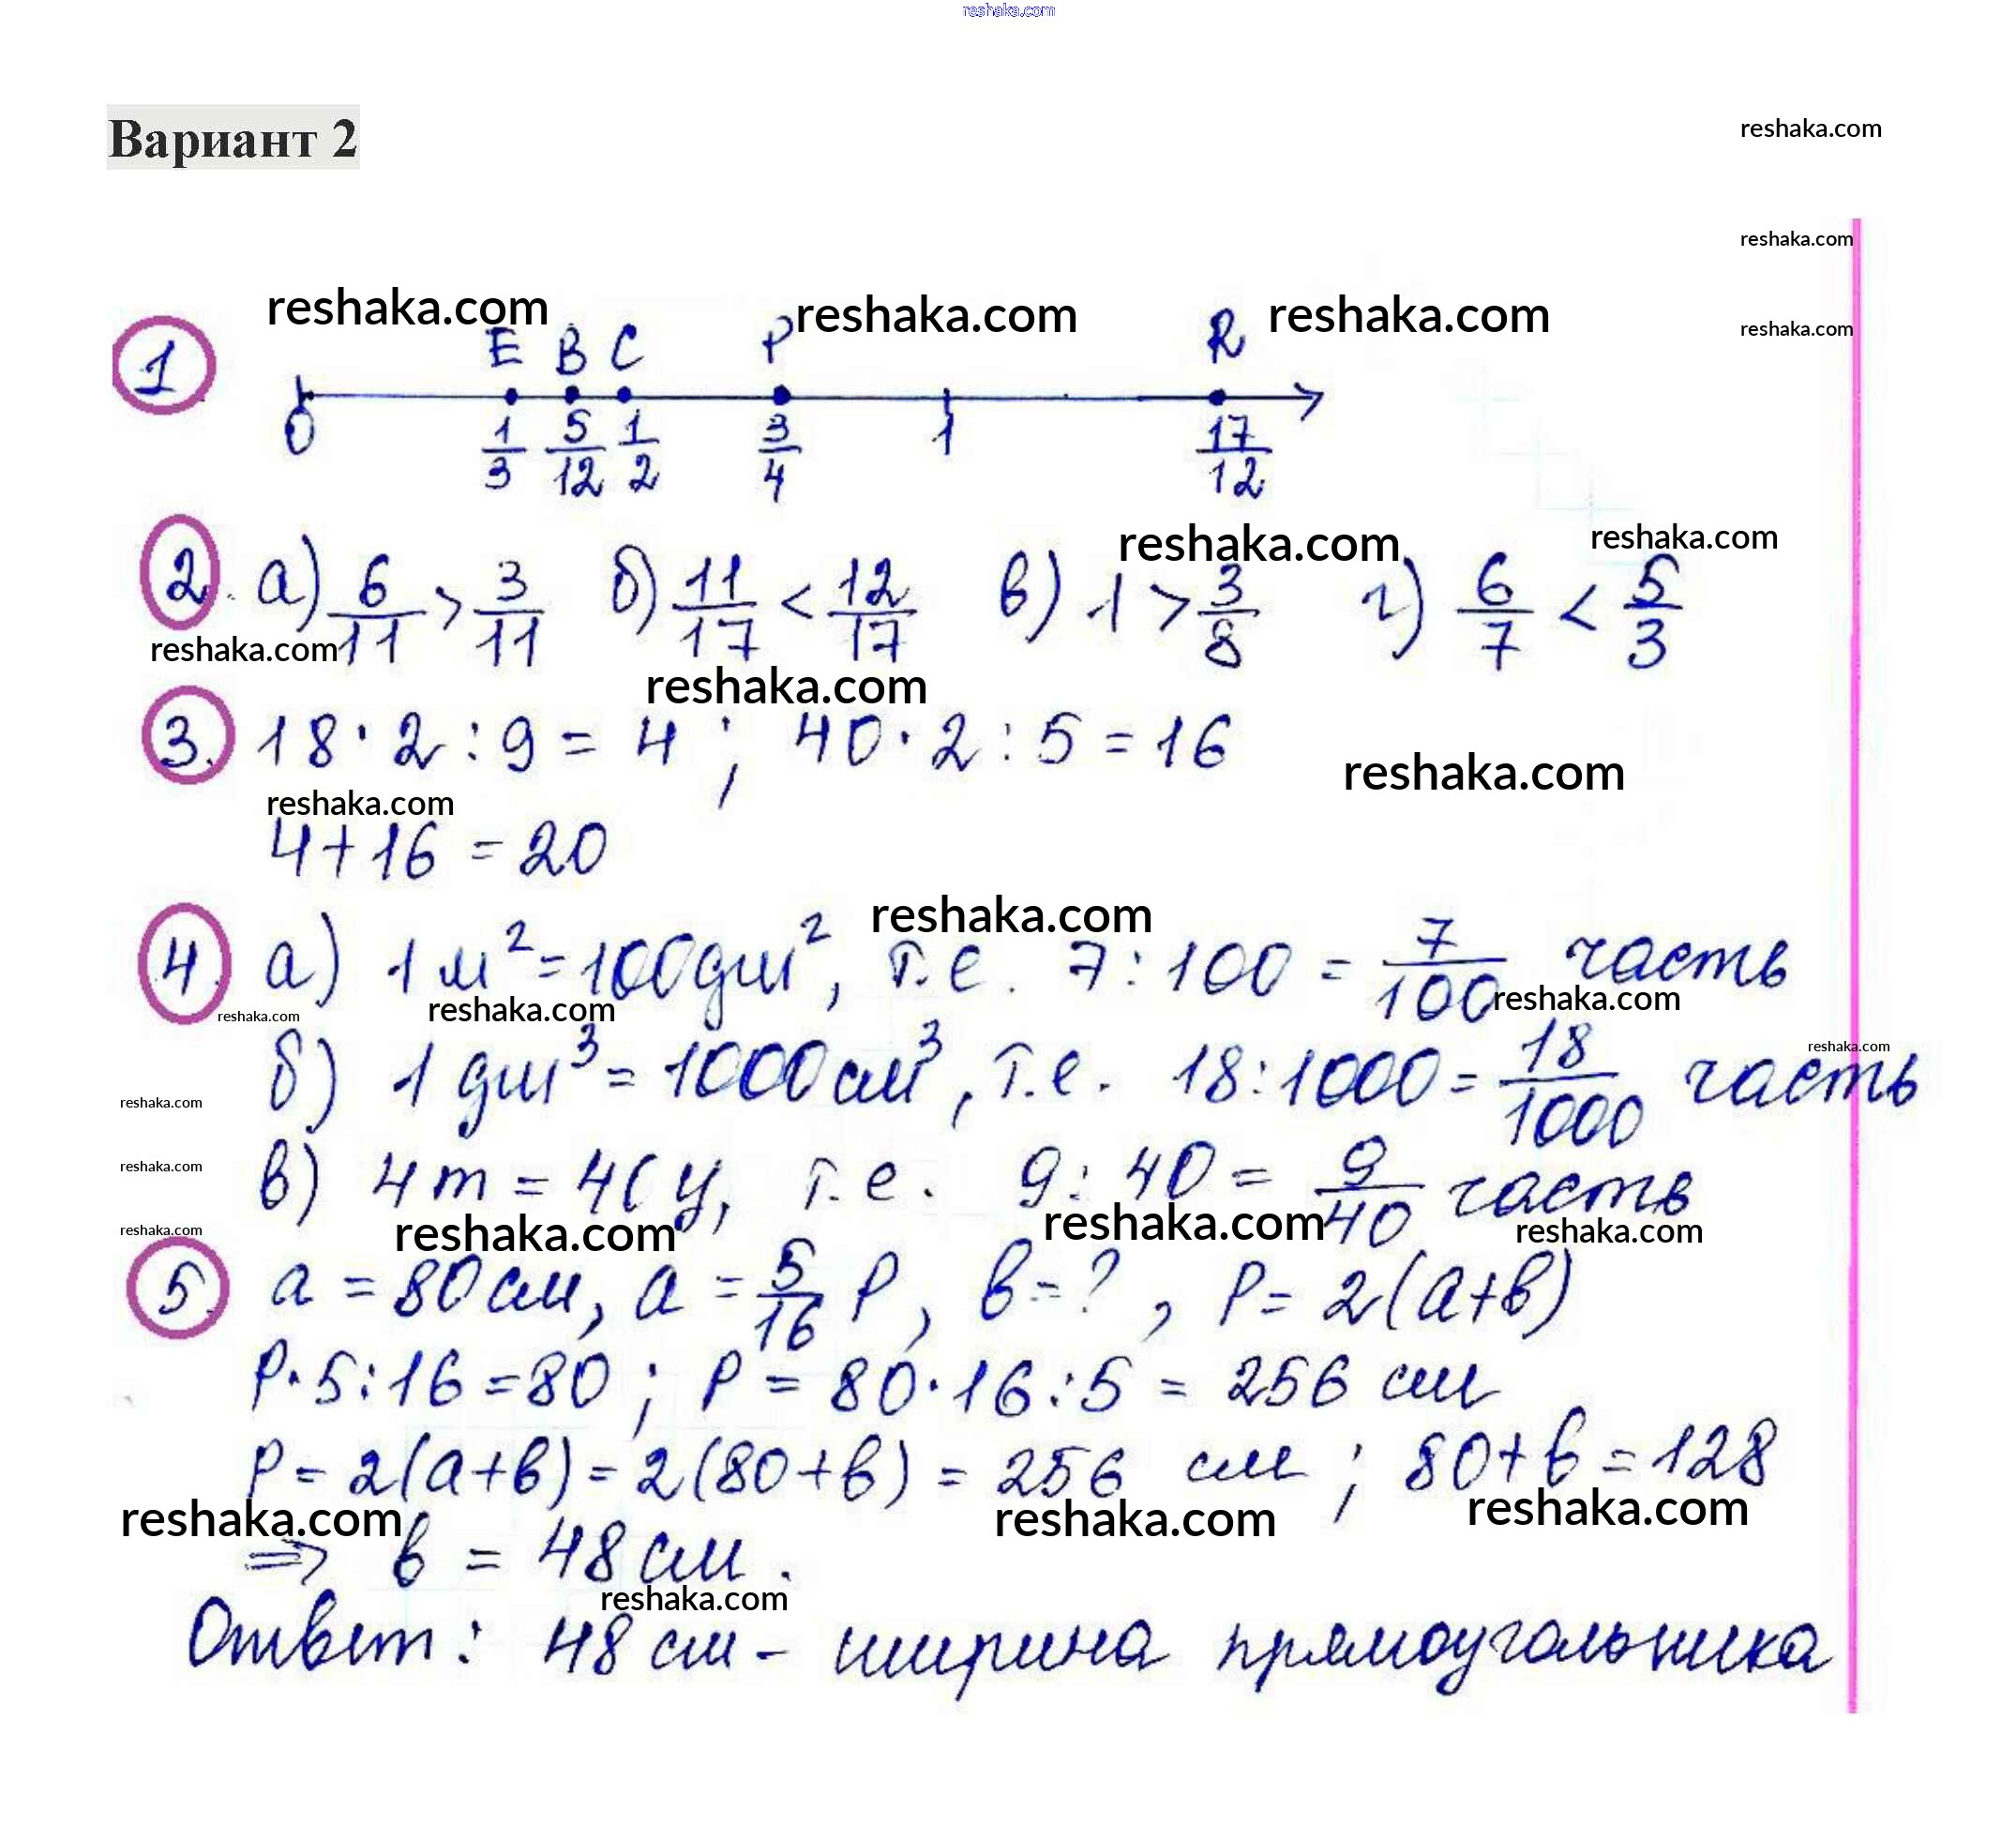 reshaka.com
Вариант 2
reshaka.com
reshaka.com
reshaka.com reshaka.com reshaka.com
reshaka.com
1 E B C P R
0 1/3 5/12 1/2 3/4 1 17/12
reshaka.com reshaka.com
2. а) 6/11 > 3/11 б) 11/17 < 12/17 в) 1 > 3/8 г) 6/7 < 5/3
reshaka.com
reshaka.com
3. 18 · 2 : 9 = 4 ; 40 · 2 : 5 = 16
reshaka.com
reshaka.com
4 + 16 = 20
reshaka.com
4. а) 1 м² = 100 дм², т.е. 7 : 100 = 7/100 часть
reshaka.com reshaka.com reshaka.com
б) 1 дм³ = 1000 см³, т.е. 18 : 1000 = 18/1000 часть
reshaka.com
reshaka.com
в) 4 т = 40 ц, т.е. 9 : 40 = 9/40 часть
reshaka.com
reshaka.com reshaka.com reshaka.com reshaka.com
5. a = 80 см, a = 5/16 P, b = ?, P = 2(a+b)
P · 5 : 16 = 80 ; P = 80 · 16 : 5 = 256 см
P = 2(a+b) = 2(80+b) = 256 см ; 80+b = 128
reshaka.com reshaka.com reshaka.com
⇒ b = 48 см.
reshaka.com
Ответ: 48 см – ширина прямоугольника